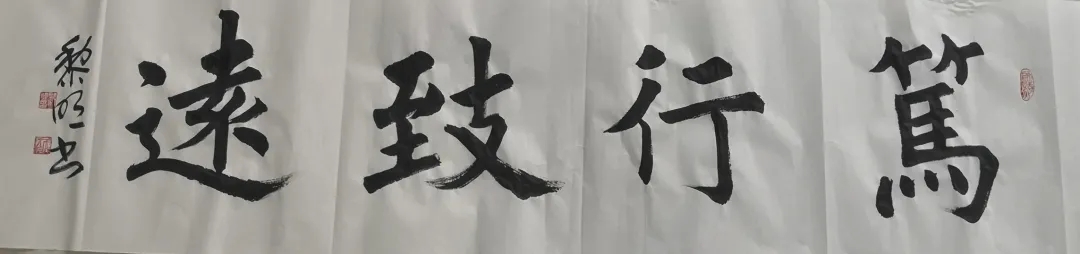 篤行致遠
黎明书